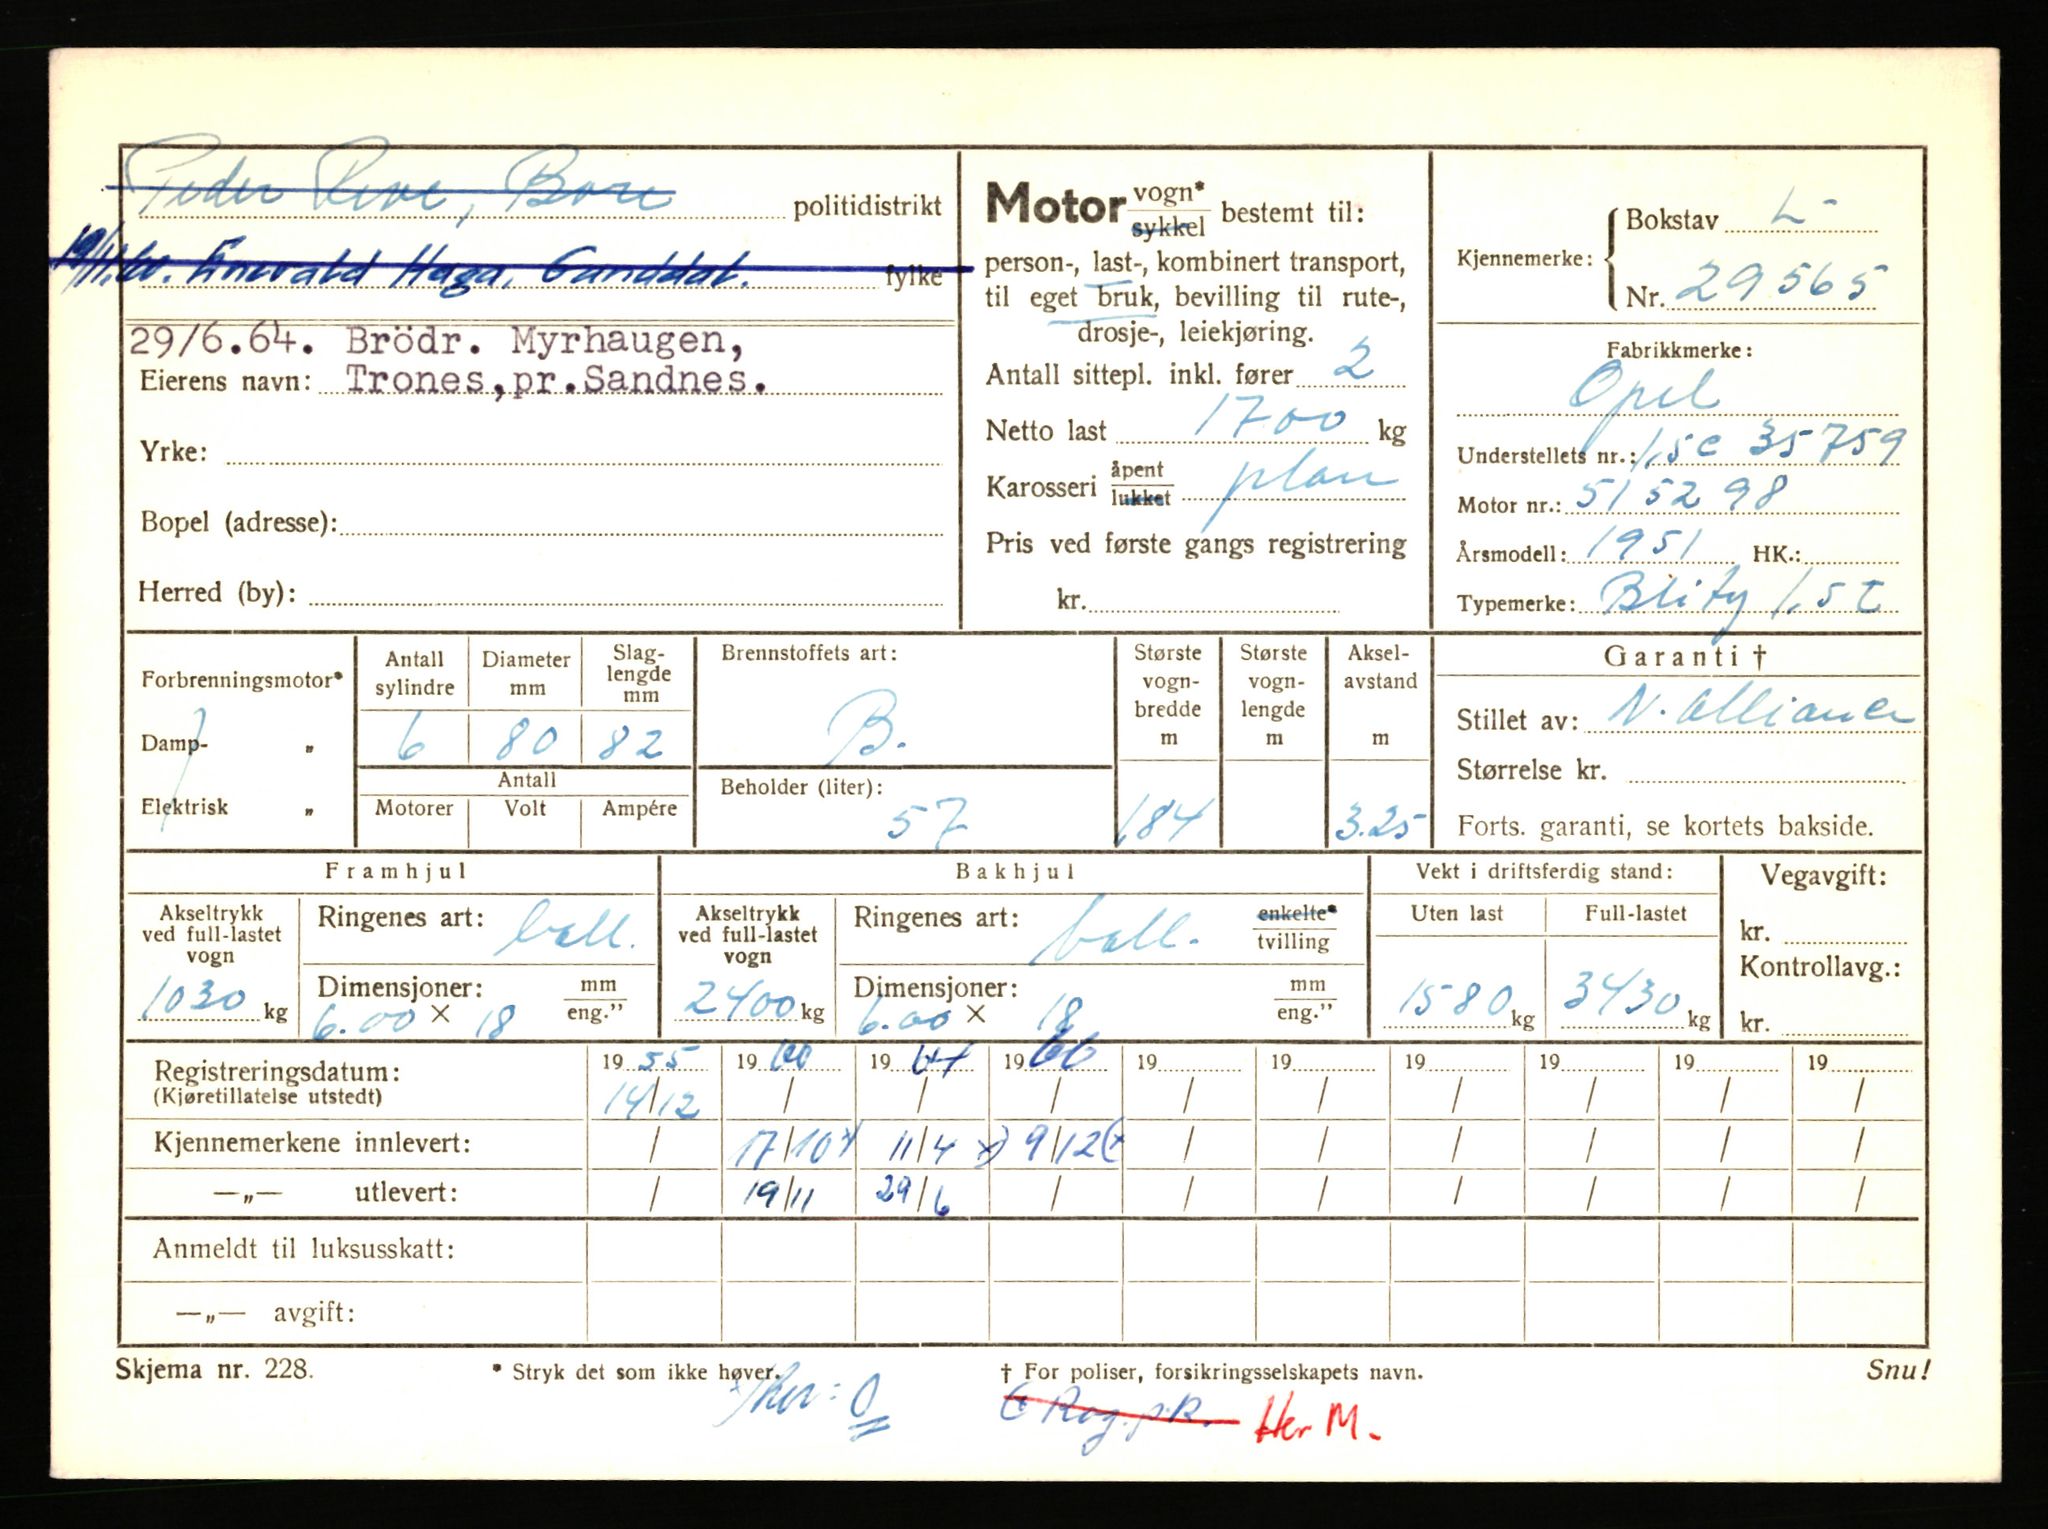 Peder Reve, Bore politidistrikt
19/11.60. Enevald Haga, Ganddal. fylke
29/6.64. Brödr. Myrhaugen,
Eierens navn: Trones, pr. Sandnes.
Yrke:
Bopel (adresse):
Herred (by):
Motor vogn* sykkel bestemt til:
person-, last-, kombinert transport,
til eget bruk, bevilling til rute-,
drosje-, leiekjøring.
Antall sittepl. inkl. fører 2
Netto last 1700 kg
Karosseri åpent lukket plan
Pris ved første gangs registrering
kr.
Kjennemerke: Bokstav L-
Nr. 29565
Fabrikkmerke:
Opel
Understellets nr.: 1,5C 35759
Motor nr.: 515298
Årsmodell: 1951 HK.:
Typemerke: Blitz 1,5 t
Forbrenningsmotor*
Damp- „
Elektrisk „
Antall sylindre 6
Diameter mm 80
Slag-lengde mm 82
Antall
Motorer Volt Ampére
Brennstoffets art:
B.
Beholder (liter):
57
Største vogn-bredde m 1,84
Største vogn-lengde m
Aksel-avstand m 3.25
Garanti †
Stillet av: N. Alliance
Størrelse kr.
Forts. garanti, se kortets bakside.
Framhjul
Akseltrykk ved full-lastet vogn 1030 kg
Ringenes art: ball.
Dimensjoner: mm eng."
6.00 × 18
Bakhjul
Akseltrykk ved full-lastet vogn 2400 kg
Ringenes art: ball. enkelte* tvilling
Dimensjoner: mm eng."
6.00 × 18
Vekt i driftsferdig stand:
Uten last Full-lastet
1580 kg 3430 kg
Vegavgift:
kr.
Kontrollavg.:
kr.
Registreringsdatum: 19 55 19 60 19 64 19 66 19 19 19 19 19 19
(Kjøretillatelse utstedt) 14/12 / / / / / / / / /
Kjennemerkene innlevert: / 17/10 x) 11/4 x) 9/12 (x / / / / / /
—„— utlevert: / 19/11 29/6 / / / / / / /
Anmeldt til luksusskatt:
—„— avgift:
Skjema nr. 228. * Stryk det som ikke høver. † For poliser, forsikringsselskapets navn. Snu!
0 Rog. p.k. Her M.